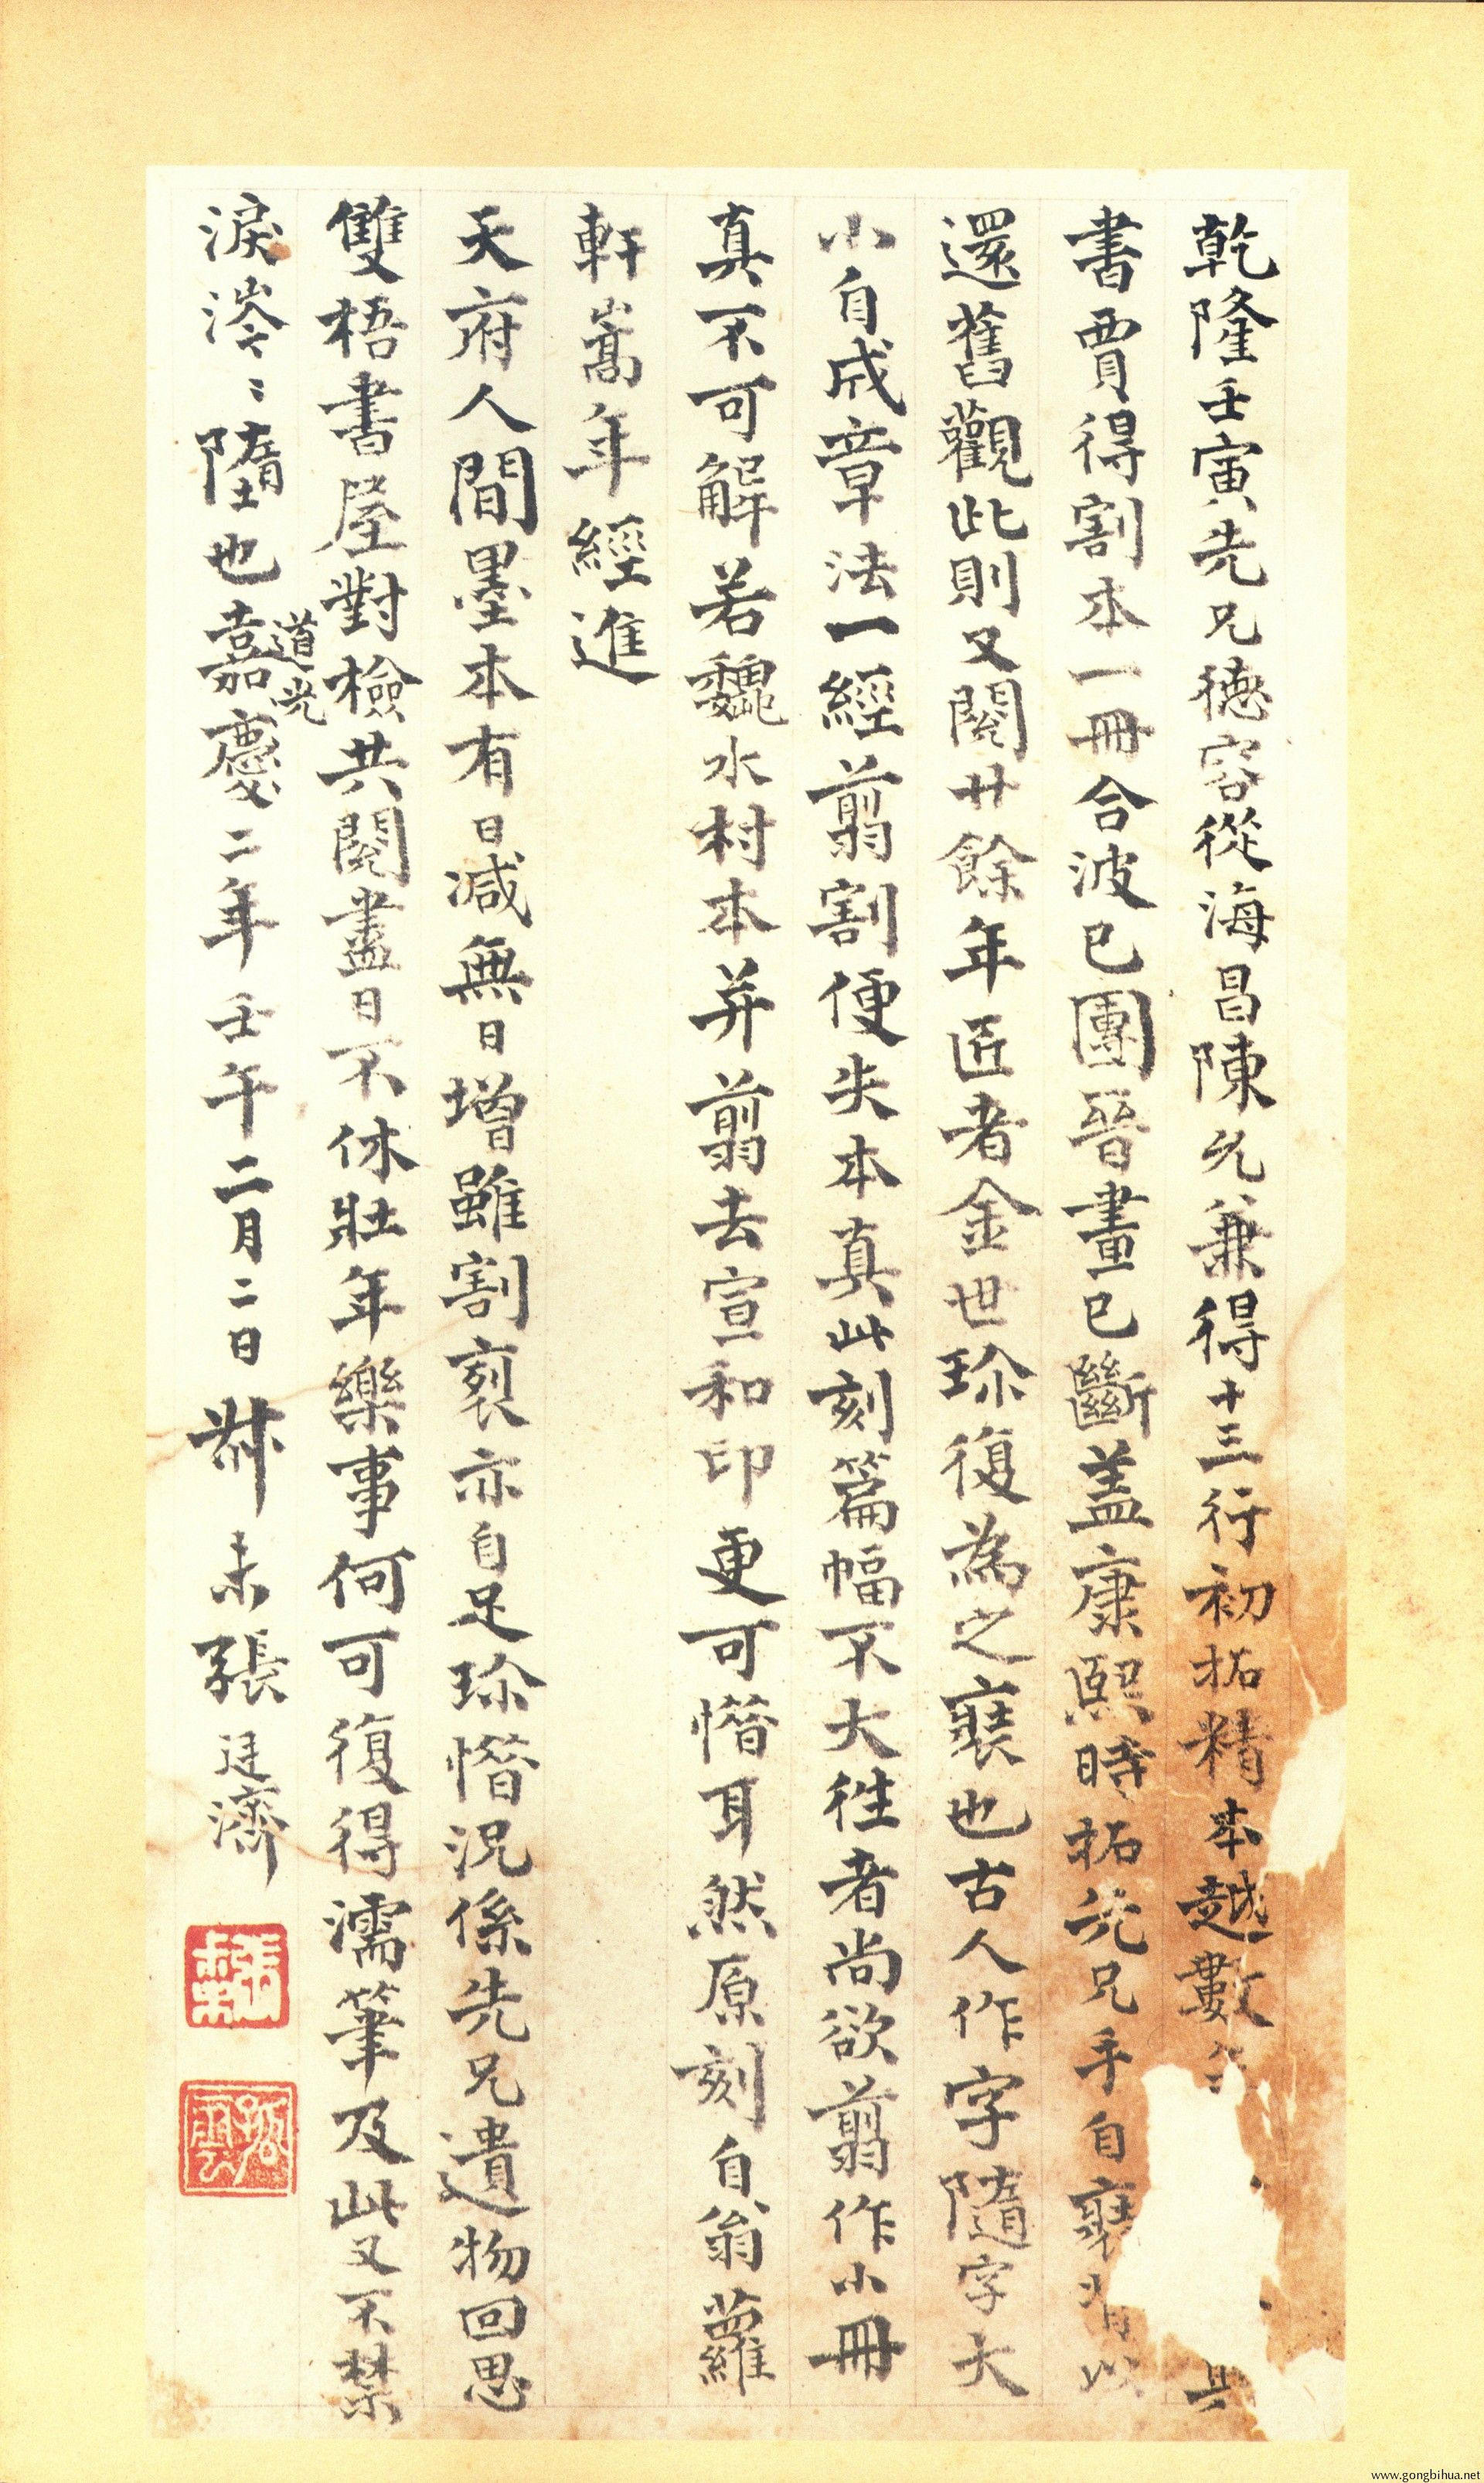 乾隆壬寅先兄德容從海昌陳氏兼得十三行初拓精本越數 具
書賈得割本一冊合波已團晉畫已斷蓋康熙時拓先兄手自裝背以
還舊觀此則又閱廿餘年匠者金世珎復為之裝也古人作字隨字大
小自成章法一經翦割便失本真此刻篇幅不大徃者尚欲翦作小冊
真不可解若魏水村本并翦去宣和印更可惜耳然原刻自翁蘿
軒嵩年經進
天府人間墨本有日減無日增雖割裂亦自足珎惜況係先兄遺物回思
雙梧書屋對檢共閱盡日不休壯年樂事何可復得濡筆及此又不禁
淚涔〻墮也嘉慶二年壬午二月二日 未張廷濟
道光
www.gongbihua.net